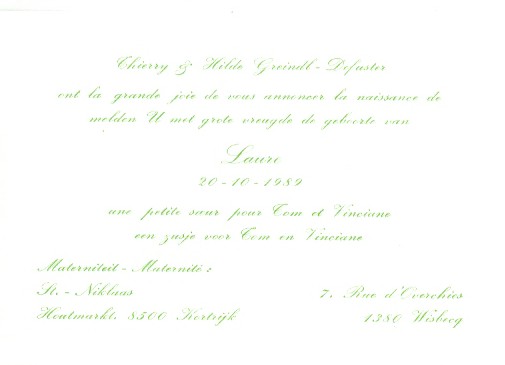 Thierry & Hilde Greindl - Defuster
ont la grande joie de vous annoncer la naissance de
melden U met grote vreugde de geboorte van
Laure
20 - 10 - 1989
une petite sœur pour Tom et Vinciane
een zusje voor Tom en Vinciane
Materniteit - Maternité :
St. - Niklaas
Houtmarkt. 8500 Kortrijk
7. Rue d'Overchies
1380 Wisbecq